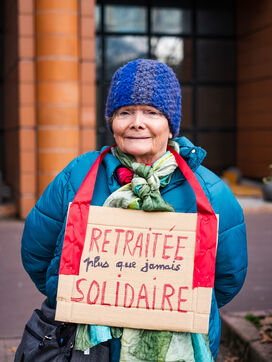 RETRAITÉE
plus que jamais
SOLIDAIRE